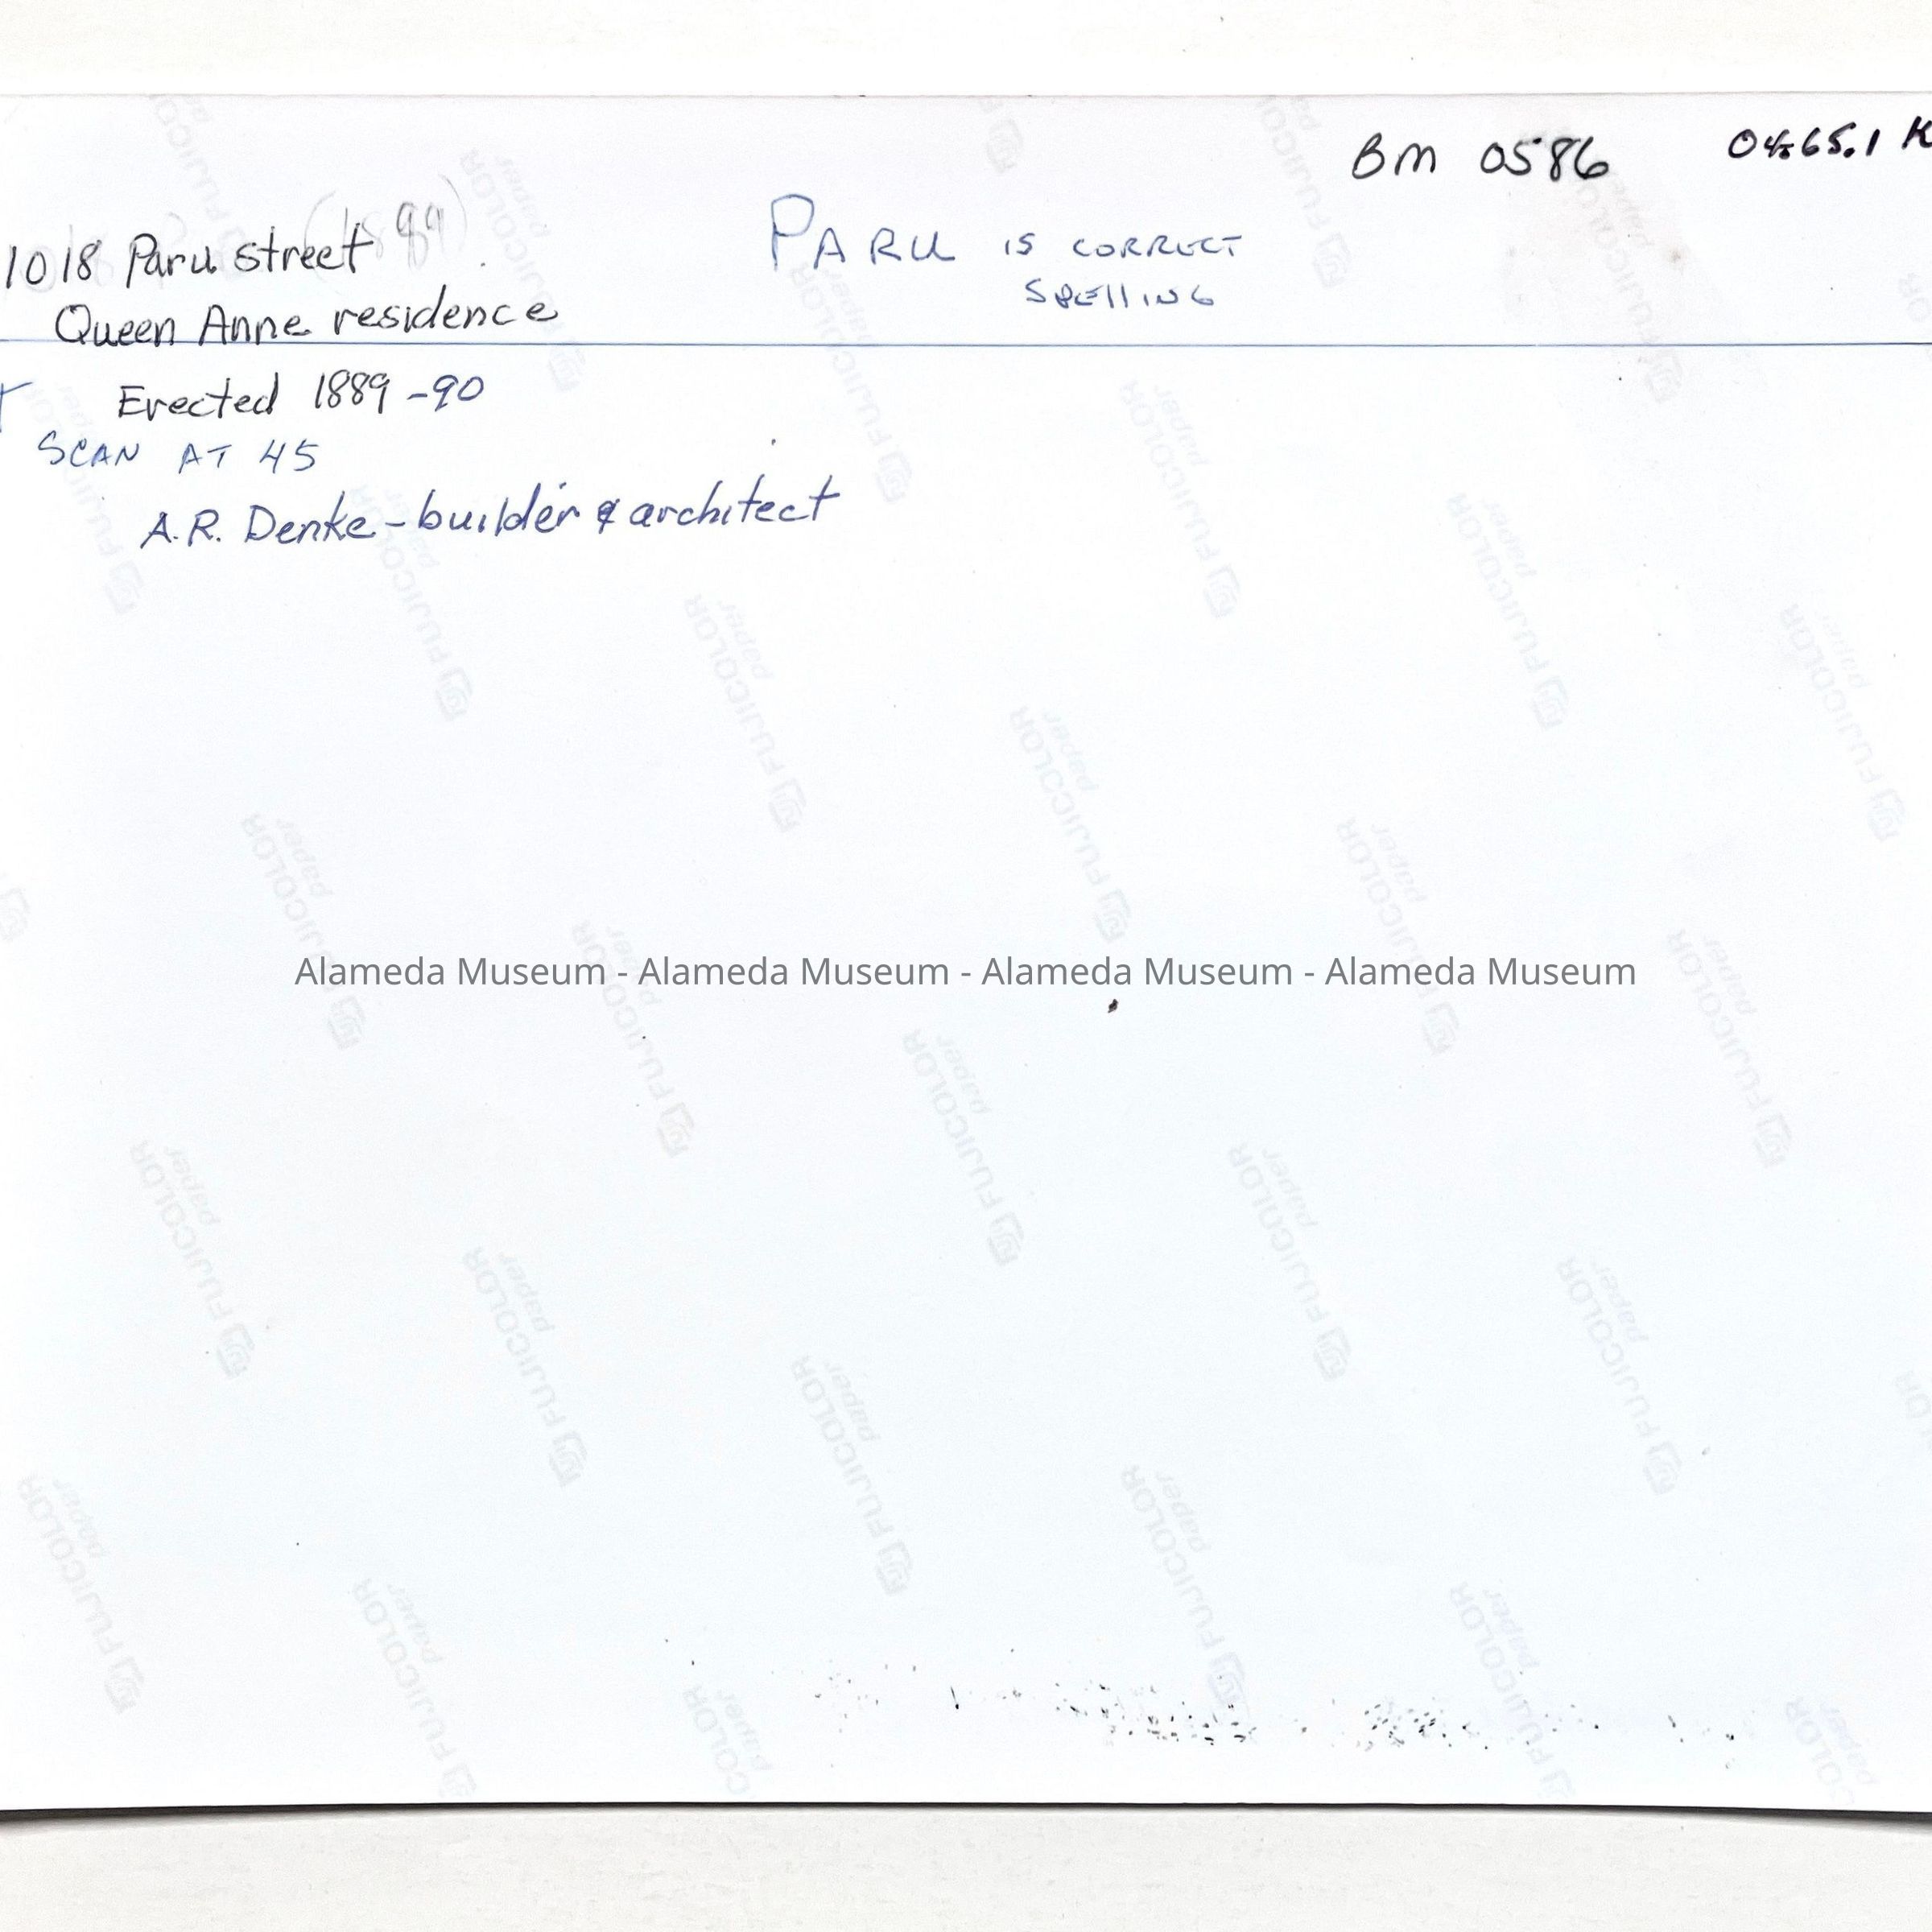 BM 0586 0465.1 K
1018 Paru street (1899)
PARU IS CORRECT
SPELLING
Queen Anne residence
Erected 1889-90
SCAN AT 45
A.R. Denke - builder & architect
Alameda Museum - Alameda Museum - Alameda Museum - Alameda Museum
FUJICOLOR
paper